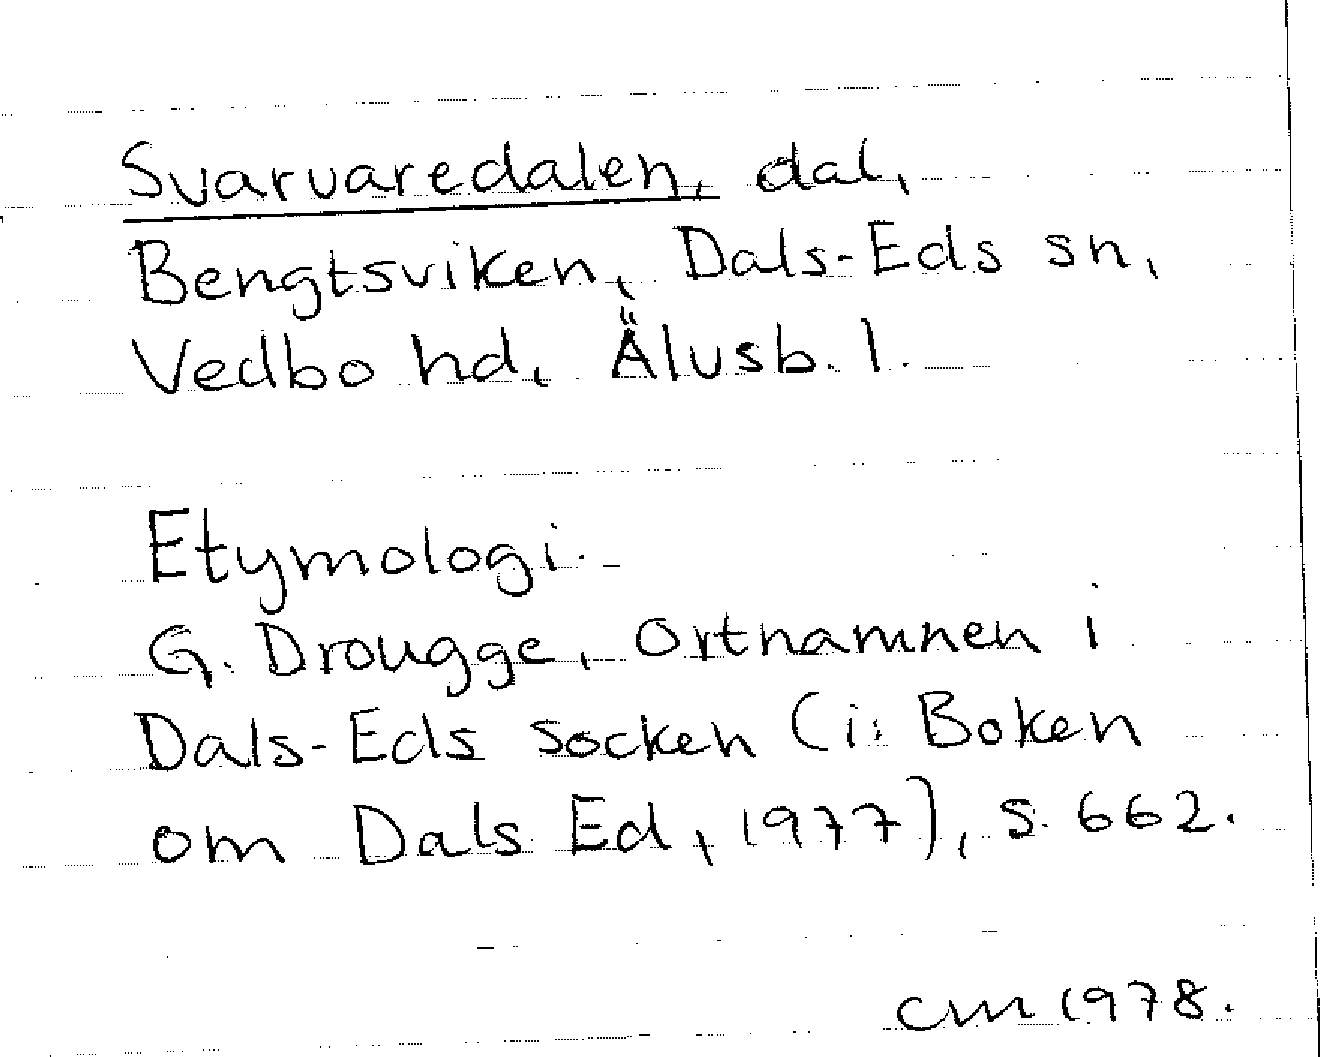 Svarvaredalen, dal,
Bengtsviken, Dals-Eds sn,
Vedbo hd, Älvsb. l.
Etymologi.
G. Drougge, Ortnamnen i
Dals-Eds socken (i: Boken
om Dals Ed, 1977), s. 662.
cm 1978.